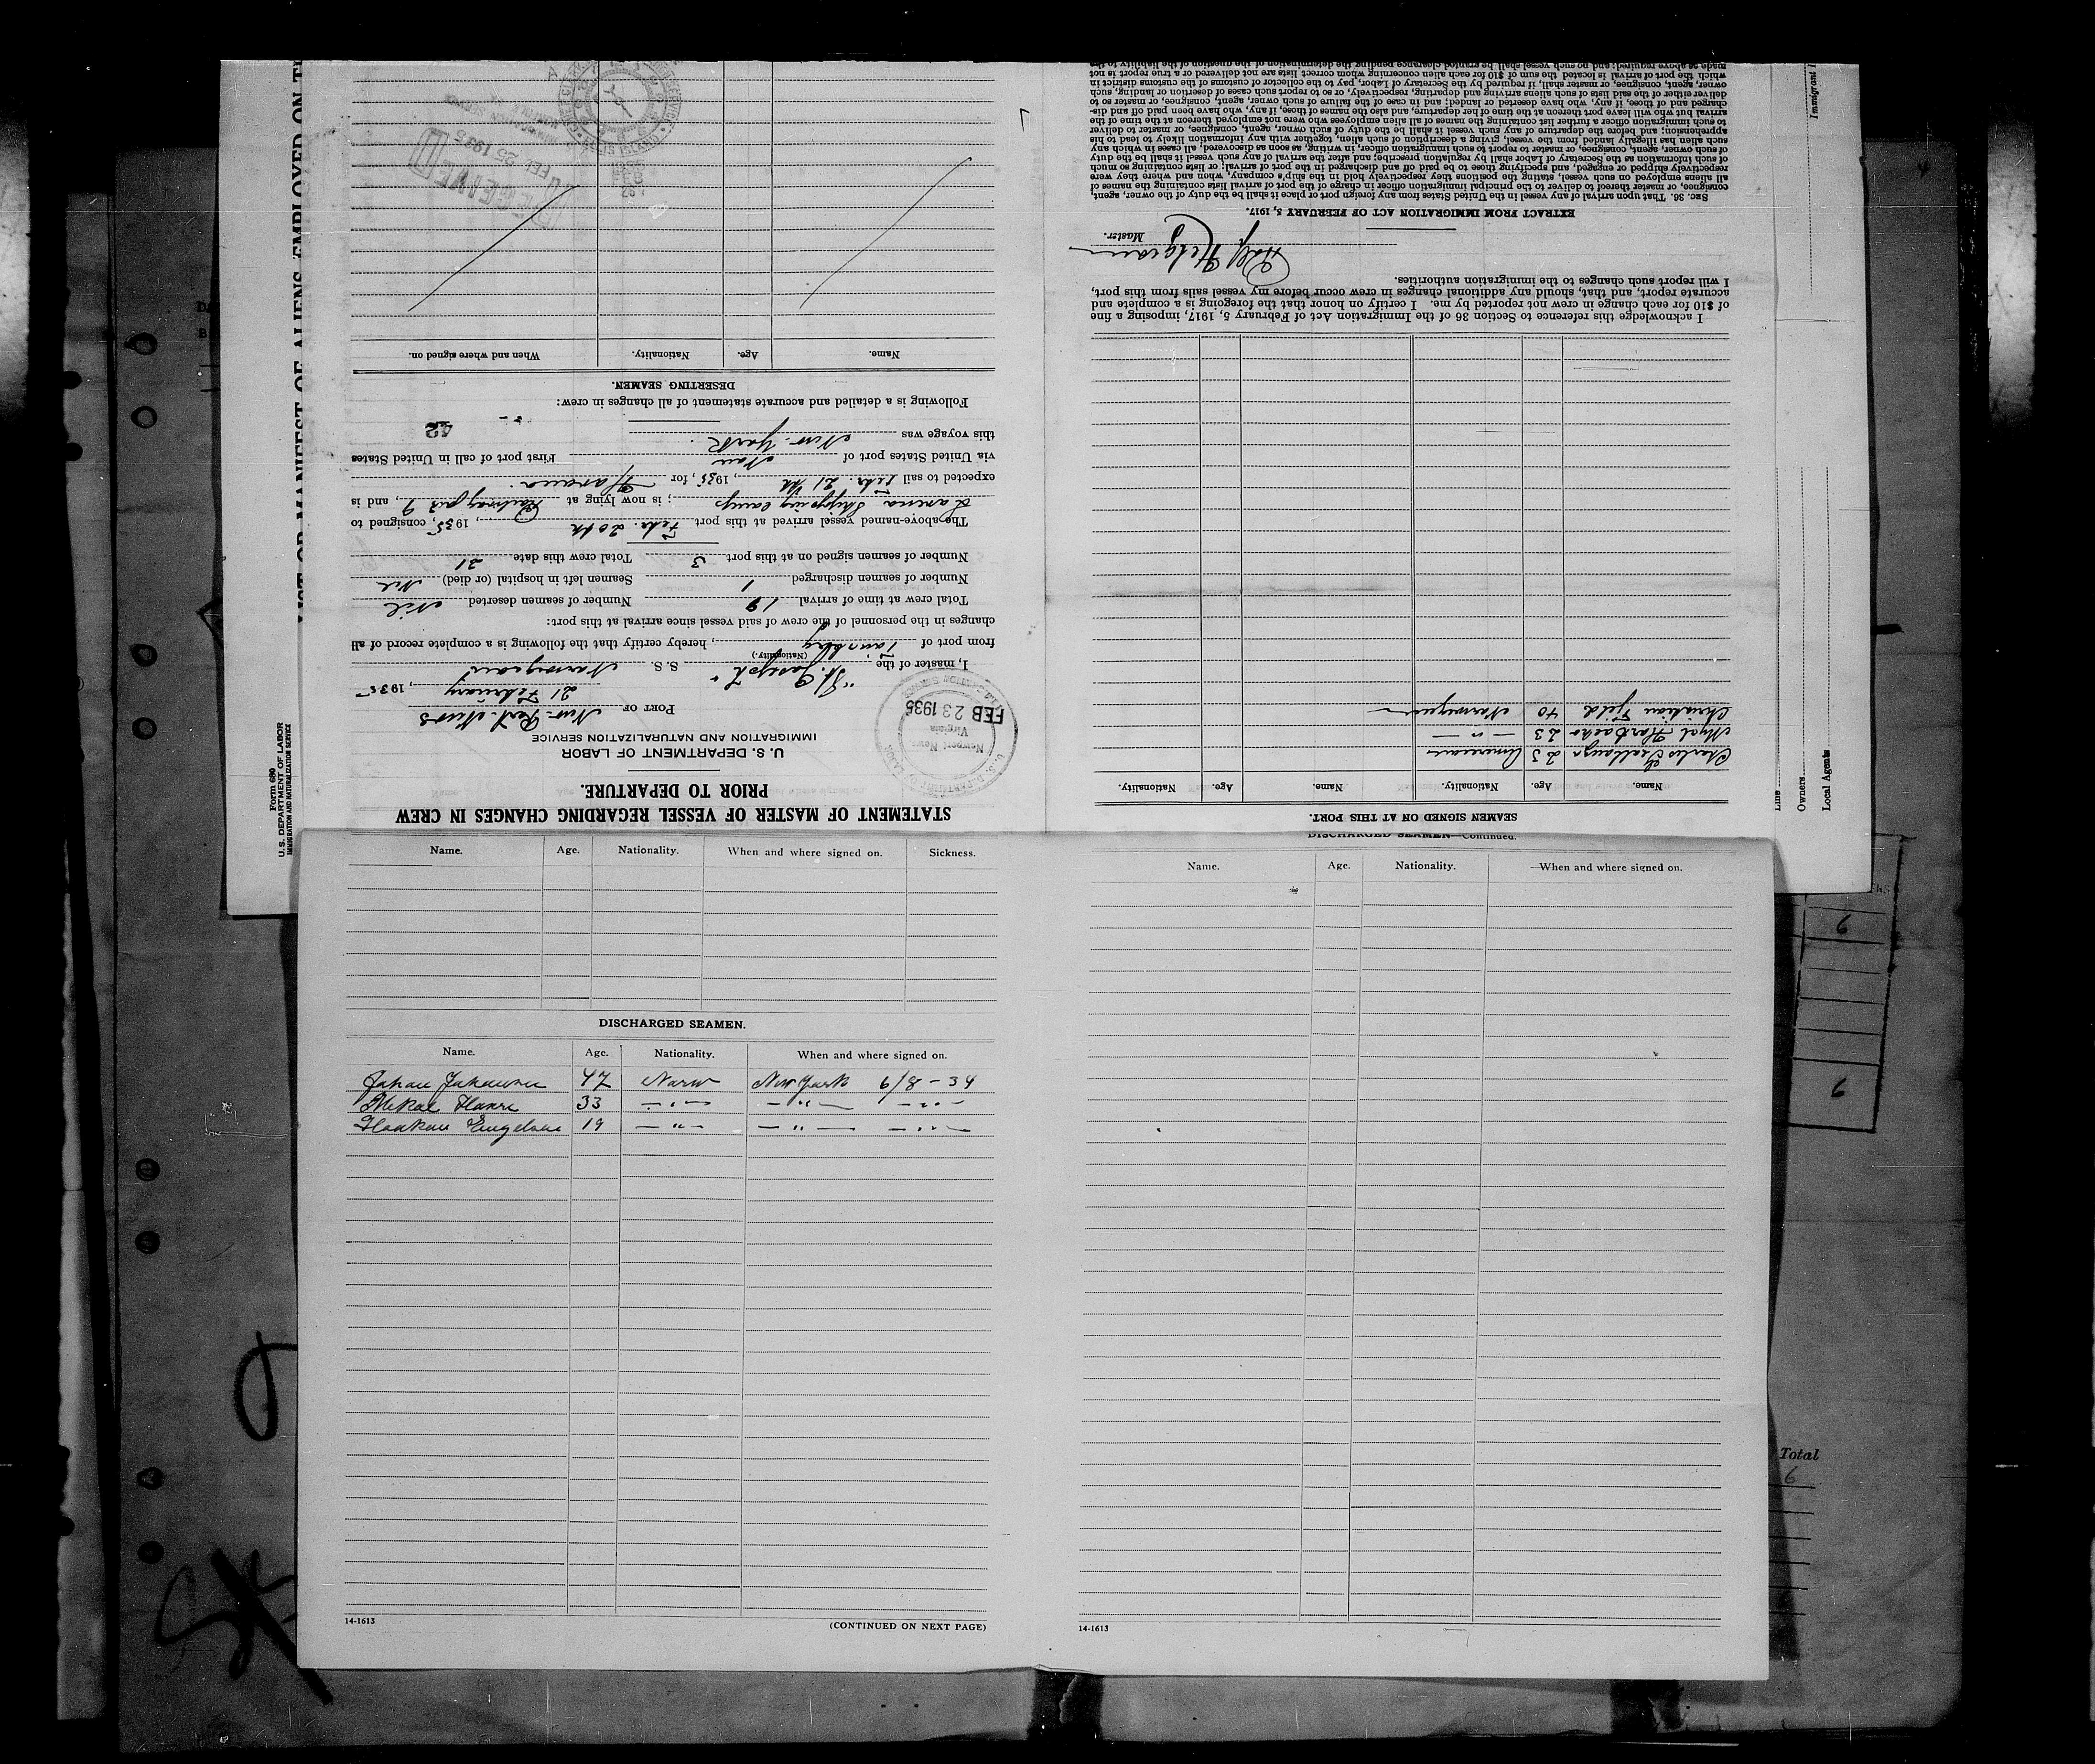 STATEMENT OF MASTER OF VESSEL REGARDING CHANGES IN CREW
PRIOR TO DEPARTURE.
U. S. DEPARTMENT OF LABOR
IMMIGRATION AND NATURALIZATION SERVICE
PORT OF New-Port-News
21 February, 1935
FEB 23 1935
Newport News
Virginia
I, master of the "St. Joseph" S. S. Norwegian
(Nationality.)
from port of, hereby certify that the following is a complete record of all
changes in the personnel of the crew of said vessel since arrival at this port:
Total crew at time of arrival 19 Number of seamen deserted Nil
Number of seamen discharged 1 Seamen left in hospital (or died) Nil
Number of seamen signed on at this port 3 Total crew this date 21
The above-named vessel arrived at this port Febr. 20th, 1935, consigned to
Shipping; is now lying at 9, and is
expected to sail Febr. 21th, 1935, for Havana.
via United States port of First port of call in United States
this voyage was New-York.
42
Following is a detailed and accurate statement of all changes in crew:
DESERTING SEAMEN.
Name. Age. Nationality. When and where signed on.
RECEIVED
FEB 25 1935
ELLIS ISLAND
SEAMEN SIGNED ON AT THIS PORT.
Name. Age. Nationality. Name. Age. Nationality.
Charles 23 American
23 — " —
Christian Fjeld 40 Norwegian
I acknowledge this reference to Section 36 of the Immigration Act of February 5, 1917, imposing a fine
of $10 for each change in crew not reported by me. I certify on honor that the foregoing is a complete and
accurate report, and that, should any additional changes in crew occur before my vessel sails from this port,
I will report such changes to the immigration authorities.
Master.
EXTRACT FROM IMMIGRATION ACT OF FEBRUARY 5, 1917.
SEC. 36. That upon arrival of any vessel in the United States from any foreign port or place it shall be the duty of the owner, agent,
consignee, or master thereof to deliver to the principal immigration officer in charge of the port of arrival lists containing the names of
all aliens employed on such vessel, stating the positions they respectively hold in the ship's company, when and where they were
respectively shipped or engaged, and specifying those to be paid off and discharged in the port of arrival; or lists containing so much
of such information as the Secretary of Labor shall by regulation prescribe; and after the arrival of any such vessel it shall be the duty
of such owner, agent, consignee, or master to report to such immigration officer, in writing, as soon as discovered, all cases in which any
such alien has illegally landed from the vessel, giving a description of such alien, together with any information likely to lead to his
apprehension; and before the departure of any such vessel it shall be the duty of such owner, agent, consignee, or master to deliver
to such immigration officer a further list containing the names of all alien employees who were not employed thereon at the time of the
arrival but who will leave port thereon at the time of her departure, and also the names of those, if any, who have been paid off and dis-
charged and of those, if any, who have deserted or landed; and in case of the failure of such owner, agent, consignee, or master to
deliver either of the said lists of such aliens arriving and departing, respectively, or so to report such cases of desertion or landing, such
owner, agent, consignee, or master shall, if required by the Secretary of Labor, pay to the collector of customs of the customs district in
which the port of arrival is located the sum of $10 for each alien concerning whom correct lists are not delivered or a true report is not
made as above required; and no such vessel shall be granted clearance pending the determination of the question of the liability to the
Form 680
U. S. DEPARTMENT OF LABOR
IMMIGRATION AND NATURALIZATION SERVICE
LIST OR MANIFEST OF ALIENS EMPLOYED ON
Line
Owners
Local Agents
Immigrant
Name. Age. Nationality. When and where signed on. Sickness.
DISCHARGED SEAMEN.
Name. Age. Nationality. When and where signed on.
Johan Johansen 47 Norw New York 6/8-34
33 — " — — " — — " —
Haakon Engelsen 19 — " — — " — — " —
14-1613
(CONTINUED ON NEXT PAGE)
DISCHARGED SEAMEN—Continued.
Name. Age. Nationality. When and where signed on.
14-1613
Total
6